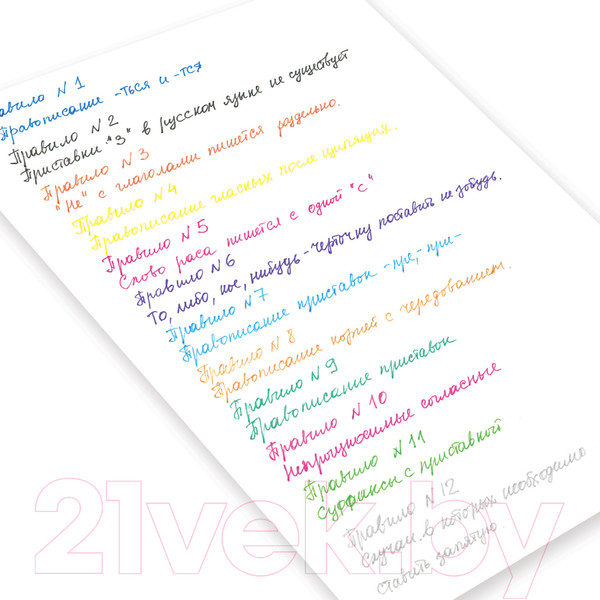 авило N 1
Правописание -ться и -тся
Правило N 2
Приставки "З" в русском языке не существует
Правило N 3
"Не" с глаголами пишется раздельно.
Правило N 4
Правописание гласных после шипящих.
Правило N 5
Слово раса пишется с одной "с"
Правило N 6
То, либо, кое, нибудь - черточку поставить не забудь.
Правило N 7
Правописание приставок -пре,- при-
Правило N 8
Правописание корней с чередованием.
Правило N 9
Правописание приставок
Правило N 10
Непроизносимые согласные
Правило N 11
Суффиксы с приставкой
Правило N 12
Случаи в которых необходимо
ставить запятую.
21vek.by